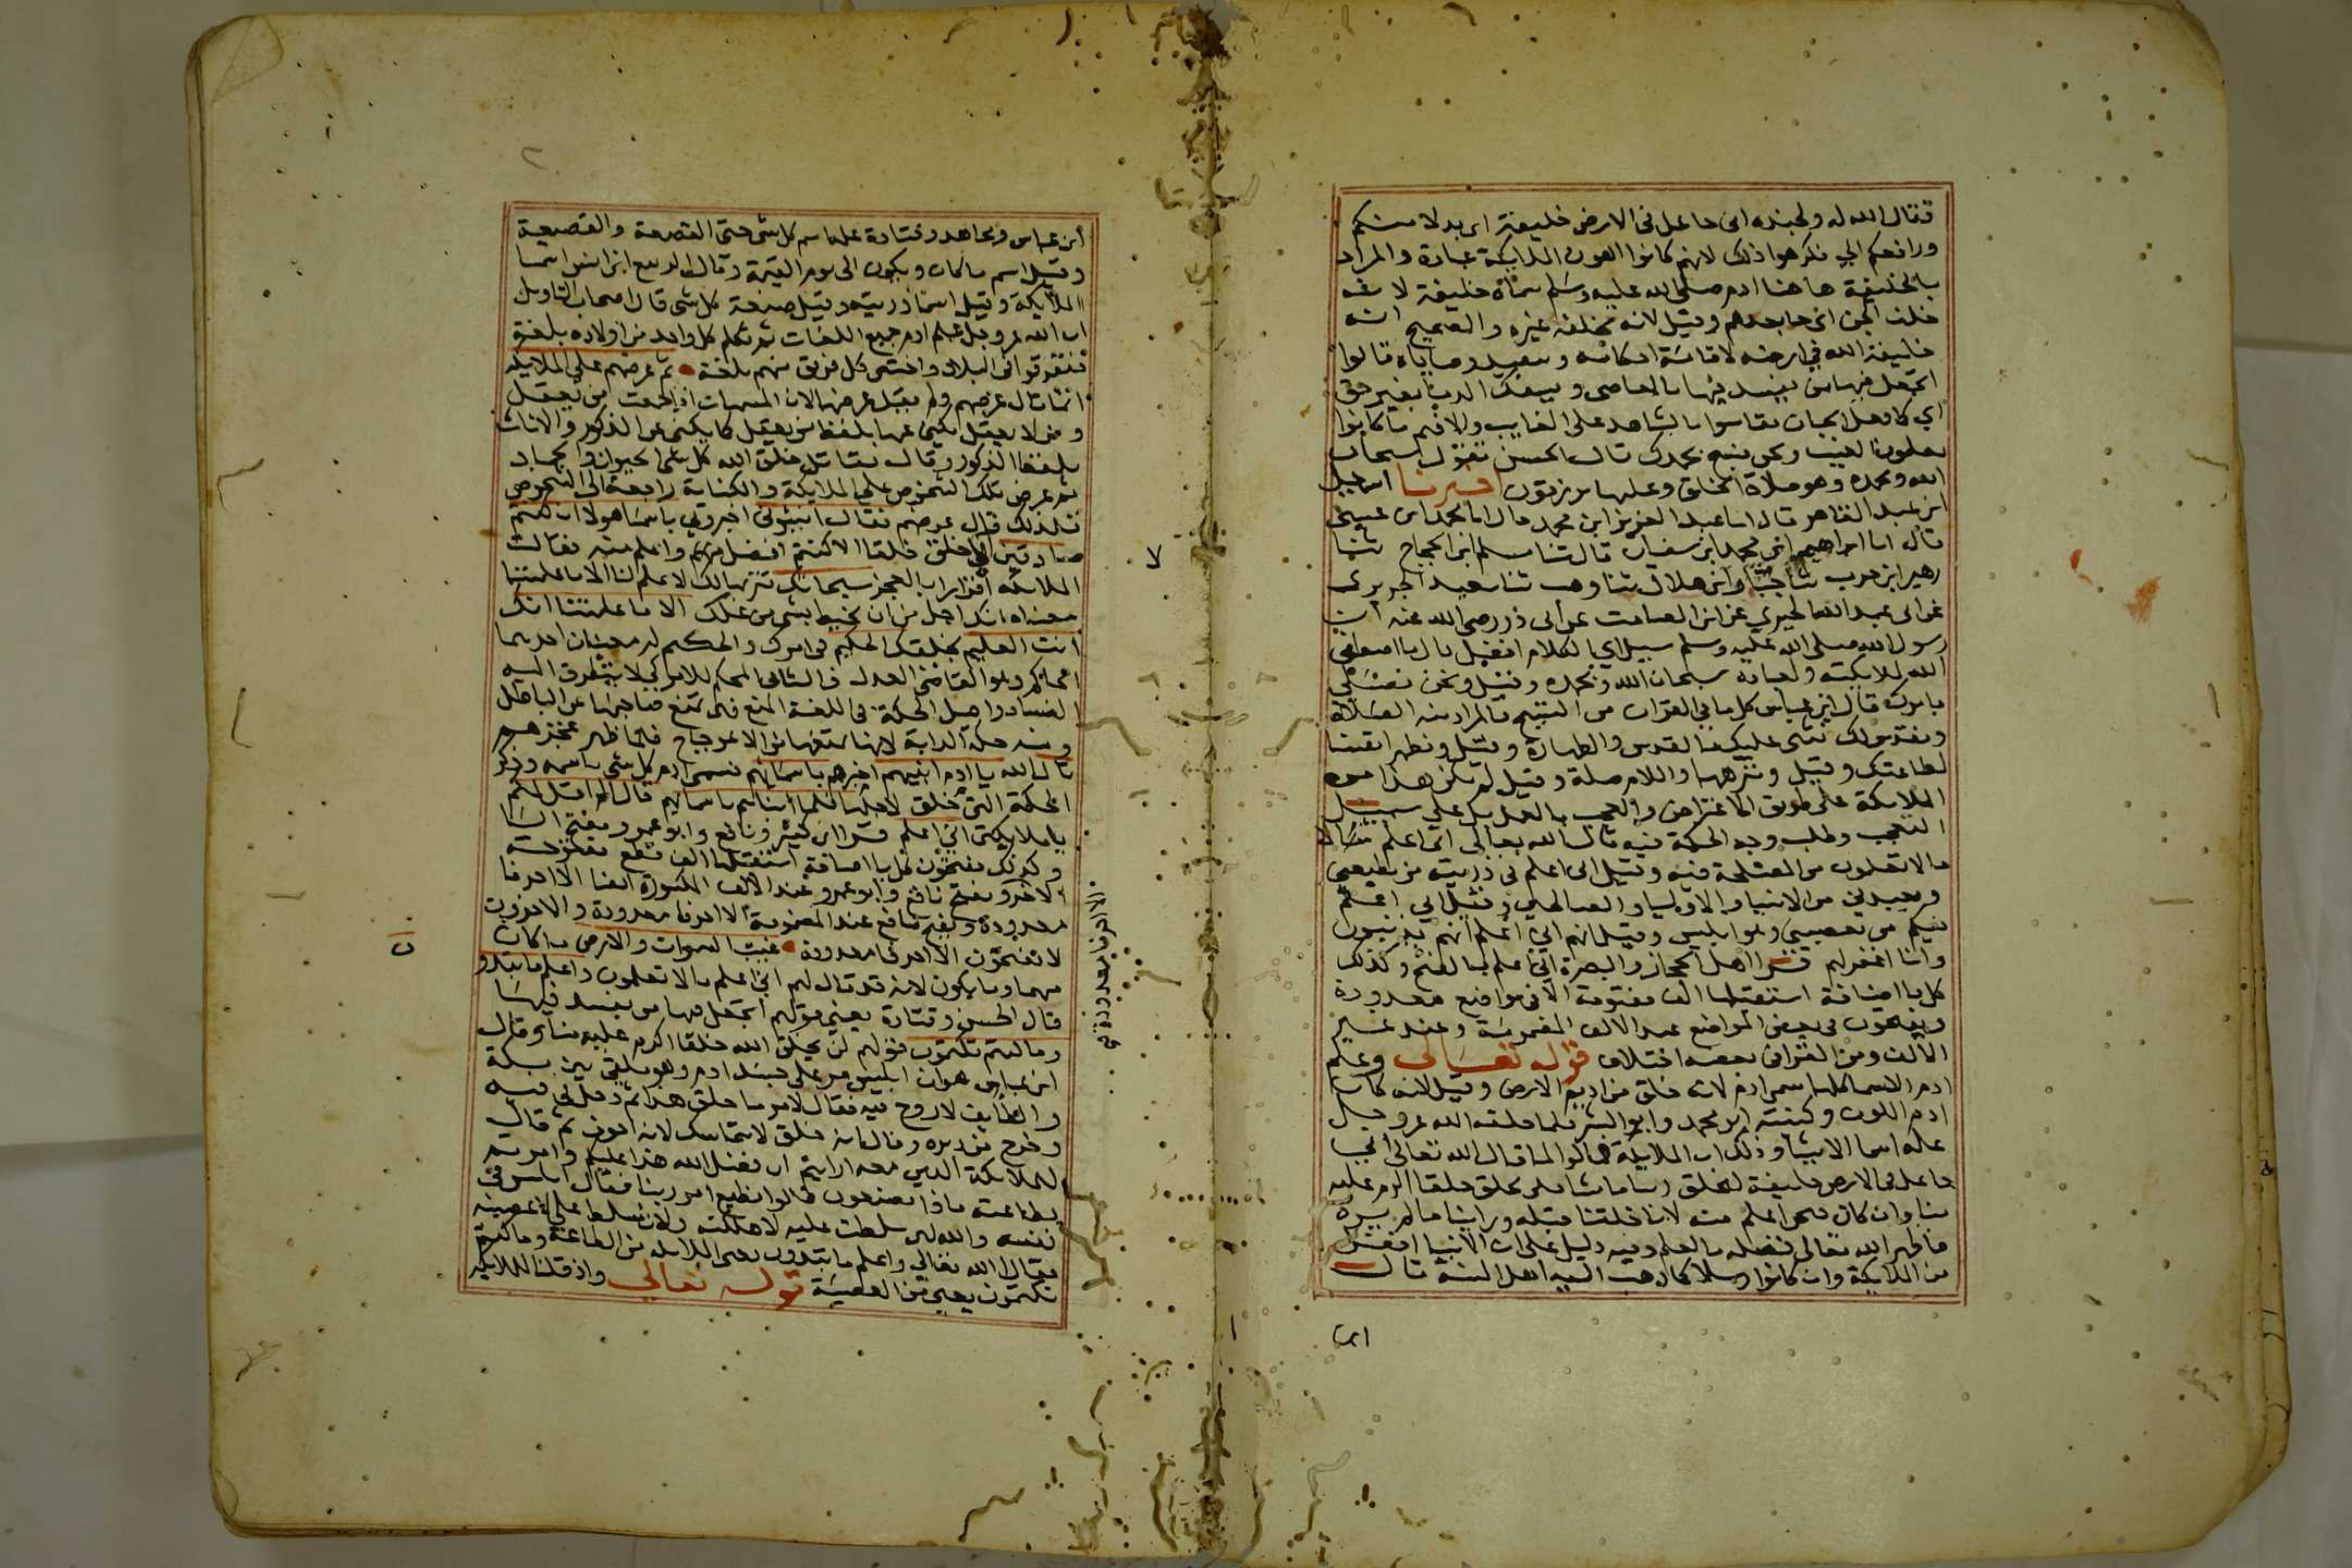 فقال الله له ولجنده اني جاعل في الارض خليفة اي بدلا منكم
ورافعكم الي فكرهوا ذلك لانهم كانوا اهون الملايكة عبادة والمراد
بالخليفة هاهنا ادم صلى الله عليه وسلم سماه خليفة لانه
خلف الجن اي جا بعدهم وقيل لانه يخلفه غيره والصحيح انه
خليفة الله في ارضه لاقامة احكامه وتنفيذ وصاياه قالوا
اتجعل فيها من يفسد فيها بالمعاصي ويسفك الدما بغير حق
اي كما فعل الجان فقاسوا بالشاهد على الغايب والا فهم ما كانوا
يعلمون الغيب ونحن نسبح بحمدك قال الحسن نقول سبحان
الله وبحمده وهو صلاة الخلق وعليها يرزقون اخبرنا اسمعيل
ابن عبد القاهر قال انا عبد العزيز ابن محمد قال انا محمد ابن عيسى
قال انا ابراهيم ابن محمد ابن سفيان قال ثنا مسلم ابن الحجاج ثنا
زهير ابن حرب ثنا حبان ابن هلال ثنا وهب ثنا سعيد الجريري
عن ابي عبد الله الجسري عن ابن الصامت عن ابي ذر رضي الله عنه ان
رسول الله صلى الله عليه وسلم سيل اي الكلام افضل قال ما اصطفى
الله لملايكته ولعباده سبحان الله وبحمده وقيل ونحن نصلي
بامرك قال ابن عباس كل ما في القران من التسبيح فالمراد منه الصلاة
ونقدس لك نثني عليك بالقدس والطهارة وقيل ونطهر انفسنا
لطاعتك وقيل وننزهك واللام صلة وقيل لم يكن هذا من
الملايكة على طريق الاعتراض والعجب بالعمل بل على سبيل
التعجب وطلب وجه الحكمة فيه قال الله تعالى اني اعلم
ما لا تعلمون من المصلحة فيه وقيل اني اعلم في ذريته من يطيعني
ويعبدني من الانبيا والاوليا والصالحين وقيل اني اعلم
فيكم من يعصيني وهو ابليس وقيل انهم اني اعلم انهم يذنبون
وانا اغفر لهم قرا اهل الحجاز والبصرة اني اعلم بالفتح وكذلك
كل يا اضافة استقبلها الف مفتوحة الا في مواضع معدودة
ويفتحون في بعض المواضع عند الالف المضمومة وعند غير
الالف ومن القرا في بعضه اختلاف قوله تعالى وعلم
ادم الاسما كلها سمي ادم لانه خلق من اديم الارض وقيل لانه كان
ادم اللون وكنيته ابو محمد وابو البشر فلما خلقه الله عز وجل
علمه اسما الاشيا وذلك ان الملايكة قالوا لما قال الله تعالى اني
جاعل في الارض خليفة ليخلق ربنا ما شا فلن يخلق خلقا اكرم عليه
منا وان كان فنحن اعلم منه لانا خلقنا قبله وراينا ما لم يره
فاظهر الله تعالى فضله بالعلم وفيه دليل على ان الانبيا افضل
من الملايكة وان كانوا رسلا كما ذهب اليه اهل السنة قال
ابن
ابن عباس ومجاهد وقتادة علمه اسم كل شي حتى القصعة والقصيعة
وقيل اسم ما كان ويكون الى يوم القيمة وقال الربيع ابن انس اسما
الملايكة وقيل اسما ذريته وقيل صنعة كل شي قال اصحاب التاويل
ان الله عز وجل علم ادم جميع اللغات ثم تكلم كل واحد من اولاده بلغة
فتفرقوا في البلاد واختص كل فريق منهم بلغة ثم عرضهم على الملايكة
انما قال عرضهم ولم يقل عرضها لان المسميات اذا جمعت من يعقل
ومن لا يعقل يكنى عنها بلفظ من يعقل كما يكنى عن الذكور والاناث
بلفظ الذكور وقال مقاتل خلق الله كل شي الحيوان والجماد
ثم عرض تلك الشخوص على الملايكة والكناية راجعة الى الشخوص
فلذلك قال عرضهم فقال انبيوني اخبروني باسما هولا ان كنتم
صادقين اني لا اخلق خلقا الا كنتم افضل منهم واعلم منه فقالت
الملايكة اقرارا بالعجز سبحانك تنزيها لك لا علم لنا الا ما علمتنا
معناه انك اجل من ان نحيط بشي من علمك الا ما علمتنا انك
انت العليم بخلقك الحكيم في امرك والحكيم له معنيان احدهما
الحاكم وهو القاضي العدل والثاني المحكم للامر كي لا يتطرق اليه
الفساد واصل الحكمة في اللغة المنع فهي تمنع صاحبها عن الباطل
ومنه حكمة الدابة لانها تمنعها من الاعوجاج فلما ظهر عجزهم
قال الله يا ادم انبيهم اخبرهم باسمايهم فسمى ادم كل شي باسمه وذكر
الحكمة التي خلق لاجلها فلما انباهم باسمايهم قال الم اقل لكم
يا ملايكتي اني اعلم قرا ابن كثير ونافع وابو عمرو بفتح اليا
وكذلك يفتحون كل يا اضافة استقبلها الف قطع مفتوحة
الا احرفا ويفتح نافع وابو عمرو عند الالف المكسورة ايضا الا احرفا
معدودة ويفتح نافع عند المضمومة الا احرفا معدودة والاخرون
لا يفتحون الا احرفا معدودة غيب السموات والارض ما كان
منهما وما يكون لانه قد قال لهم اني اعلم ما لا تعلمون واعلم ما تبدون
قال الحسن وقتادة يعني قولهم اتجعل فيها من يفسد فيها
وما كنتم تكتمون قولهم لن يخلق الله خلقا اكرم عليه منا وقال
ابن عباس هو ان ابليس مر على جسد ادم وهو ملقى بين مكة
والطايف لا روح فيه فقال لامر ما خلق هذا ثم دخل في فيه
وخرج من دبره وقال انه خلق لا يتماسك لانه اجوف ثم قال
للملايكة الذين معه ارايتم ان فضل الله هذا عليكم وامرتم
بطاعته ماذا تصنعون قالوا نطيع امر ربنا فقال ابليس في
نفسه والله لين سلطت عليه لاهلكنه ولان سلط علي لاعصينه
فقال الله تعالى واعلم ما تبدون يعني الملايكة من الطاعة وما كنتم
تكتمون يعني من المعصية قوله تعالى واذ قلنا للملايكة
الا احرفا معدودة